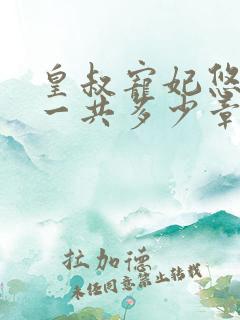 皇叔寵妃悠
一共多少章
拉加德
未经同意禁止转载